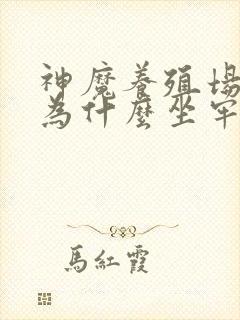 神魔養殖場
為什麼坐牢
馬紅霞